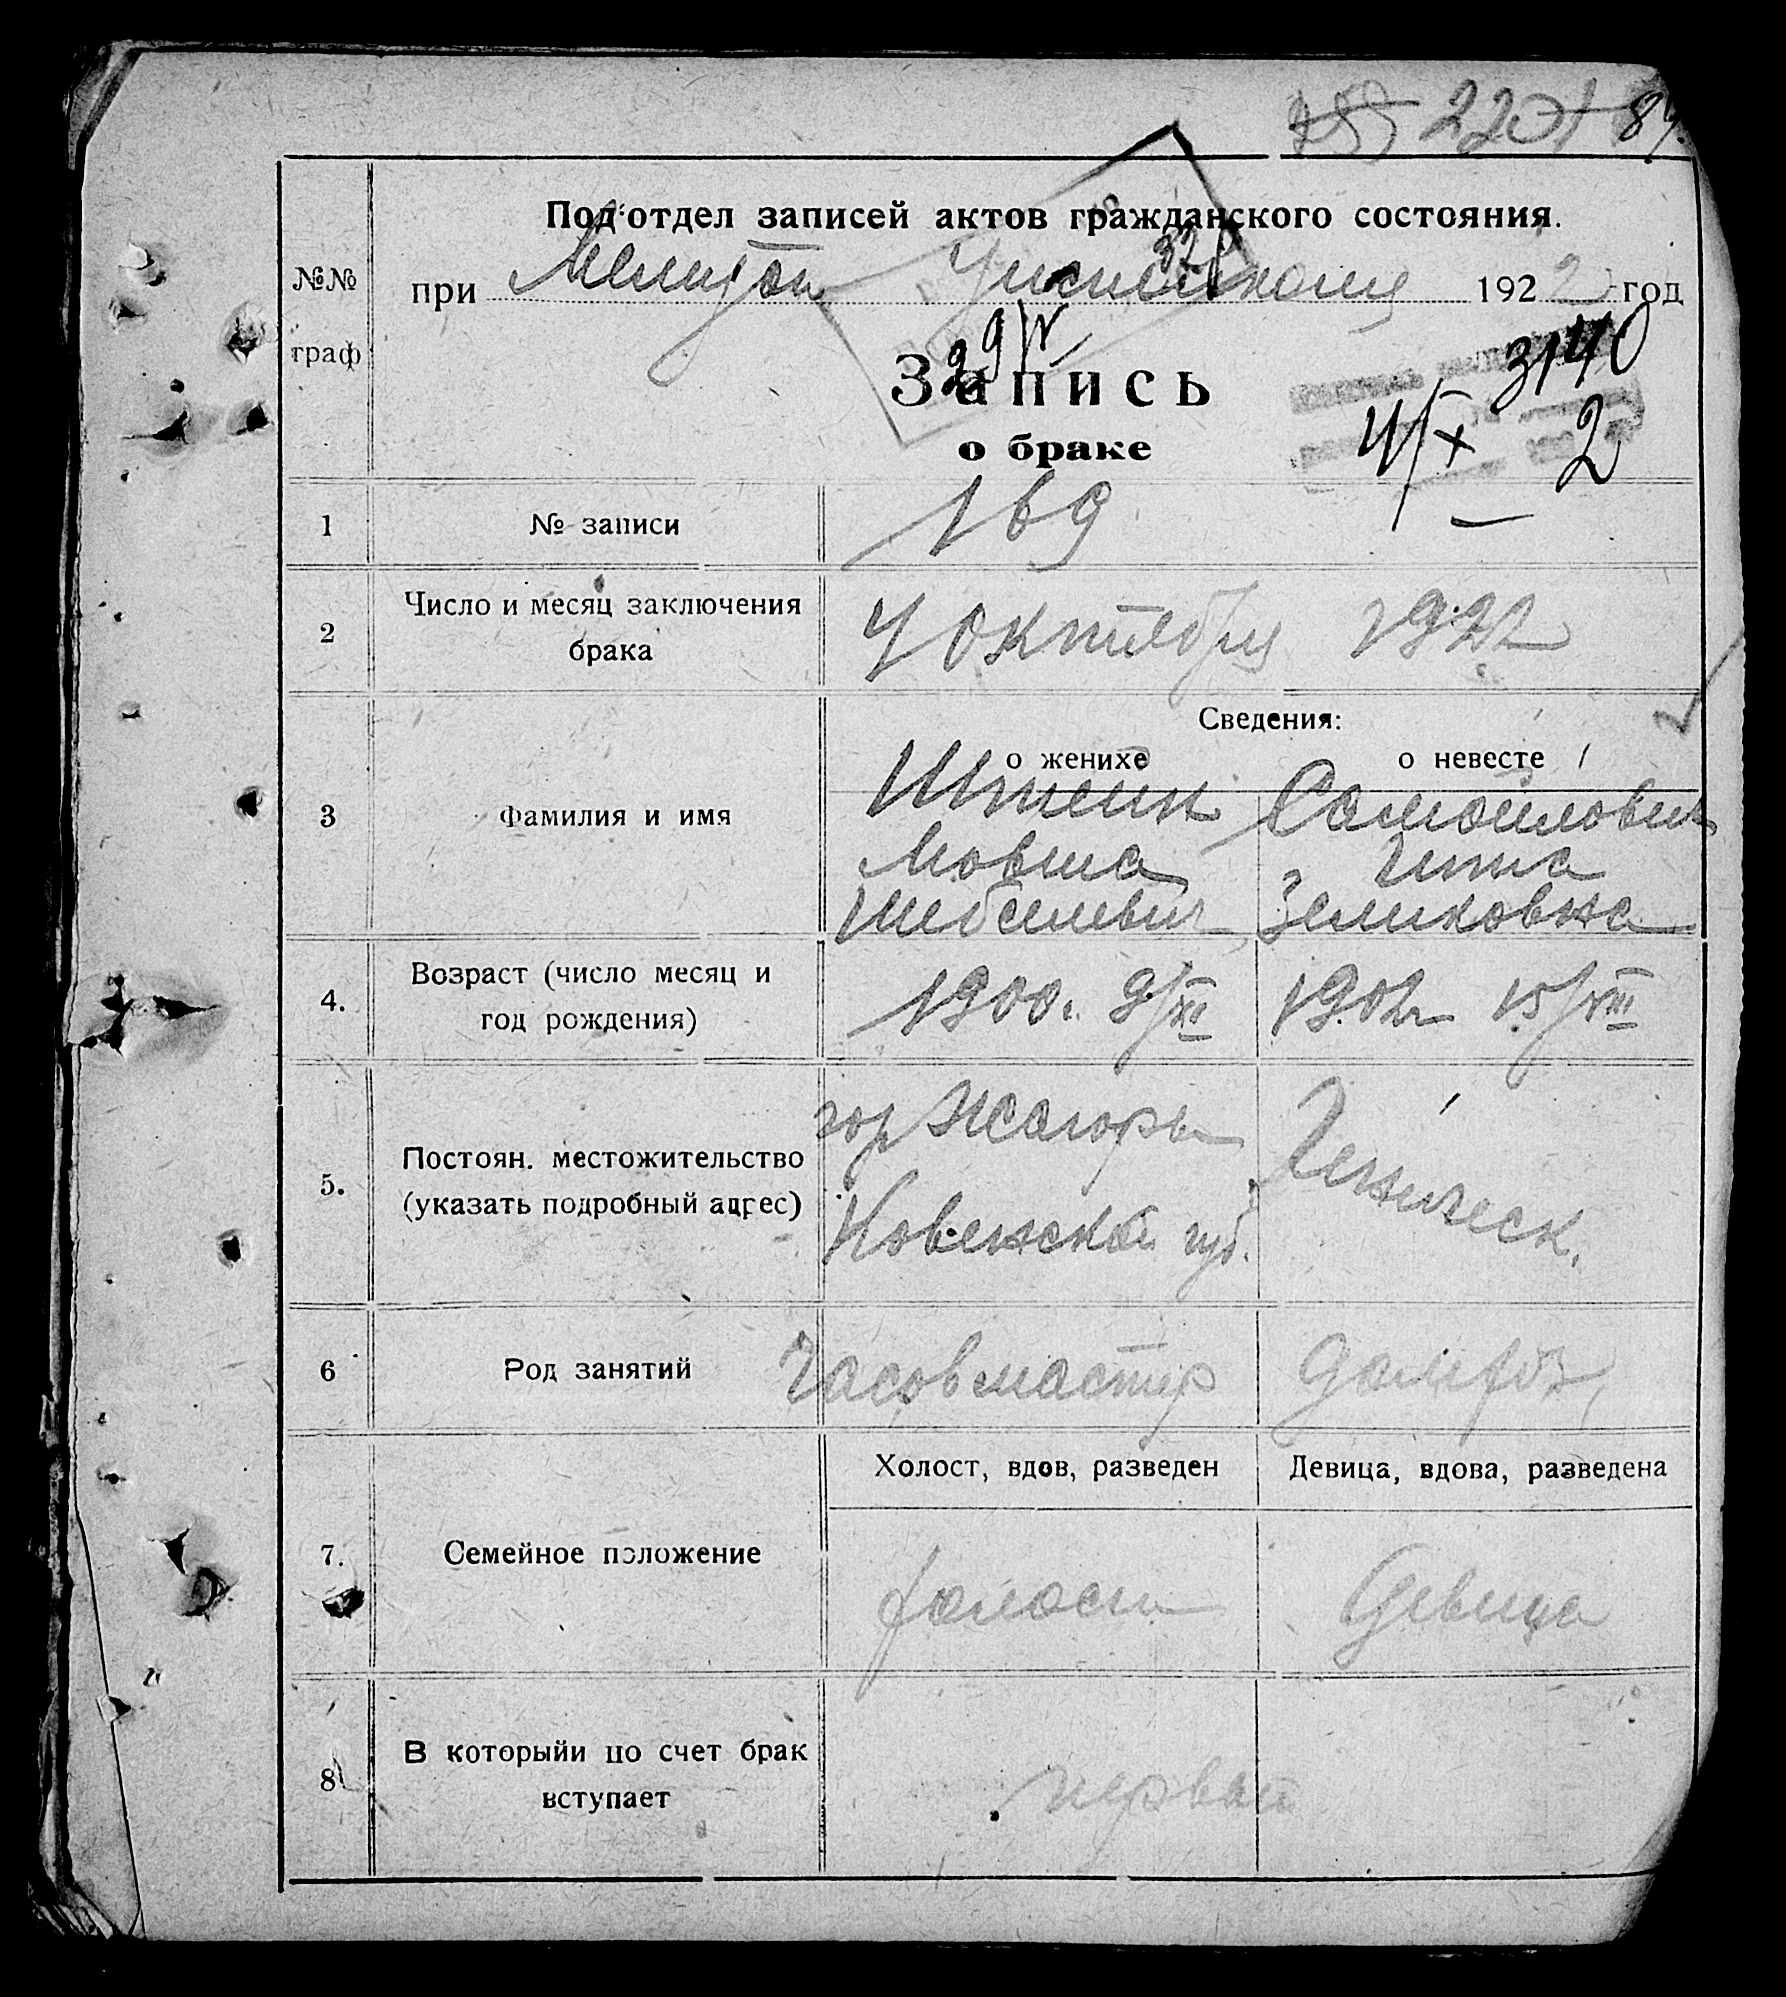 220
84.
Под'отдел записей актов гражданского состояния.
№№
граф
при Мелитоп Уисполкоме 1922 год
Запись
о браке
3140
4/X 2
1 № записи 169
2 Число и месяц заключения
брака
4 Октября 1922
Сведения:
о женихе о невесте
3 Фамилия и имя
Штейн Самойлович
Мовша Гита
Шебселевич Зеликовна
4. Возраст (число месяц и
год рождения)
1900г. 9/XII 1902г 15/VIII
5. Постоян. местожительство
(указать подробный адрес)
гор Жагоры
Ковенской губ.
Геническ.
6 Род занятий Часов мастер домхоз,
Холост, вдов, разведен Девица, вдова, разведена
7. Семейное положение
холост девица
8 В которыйи по счет брак
вступает
первый